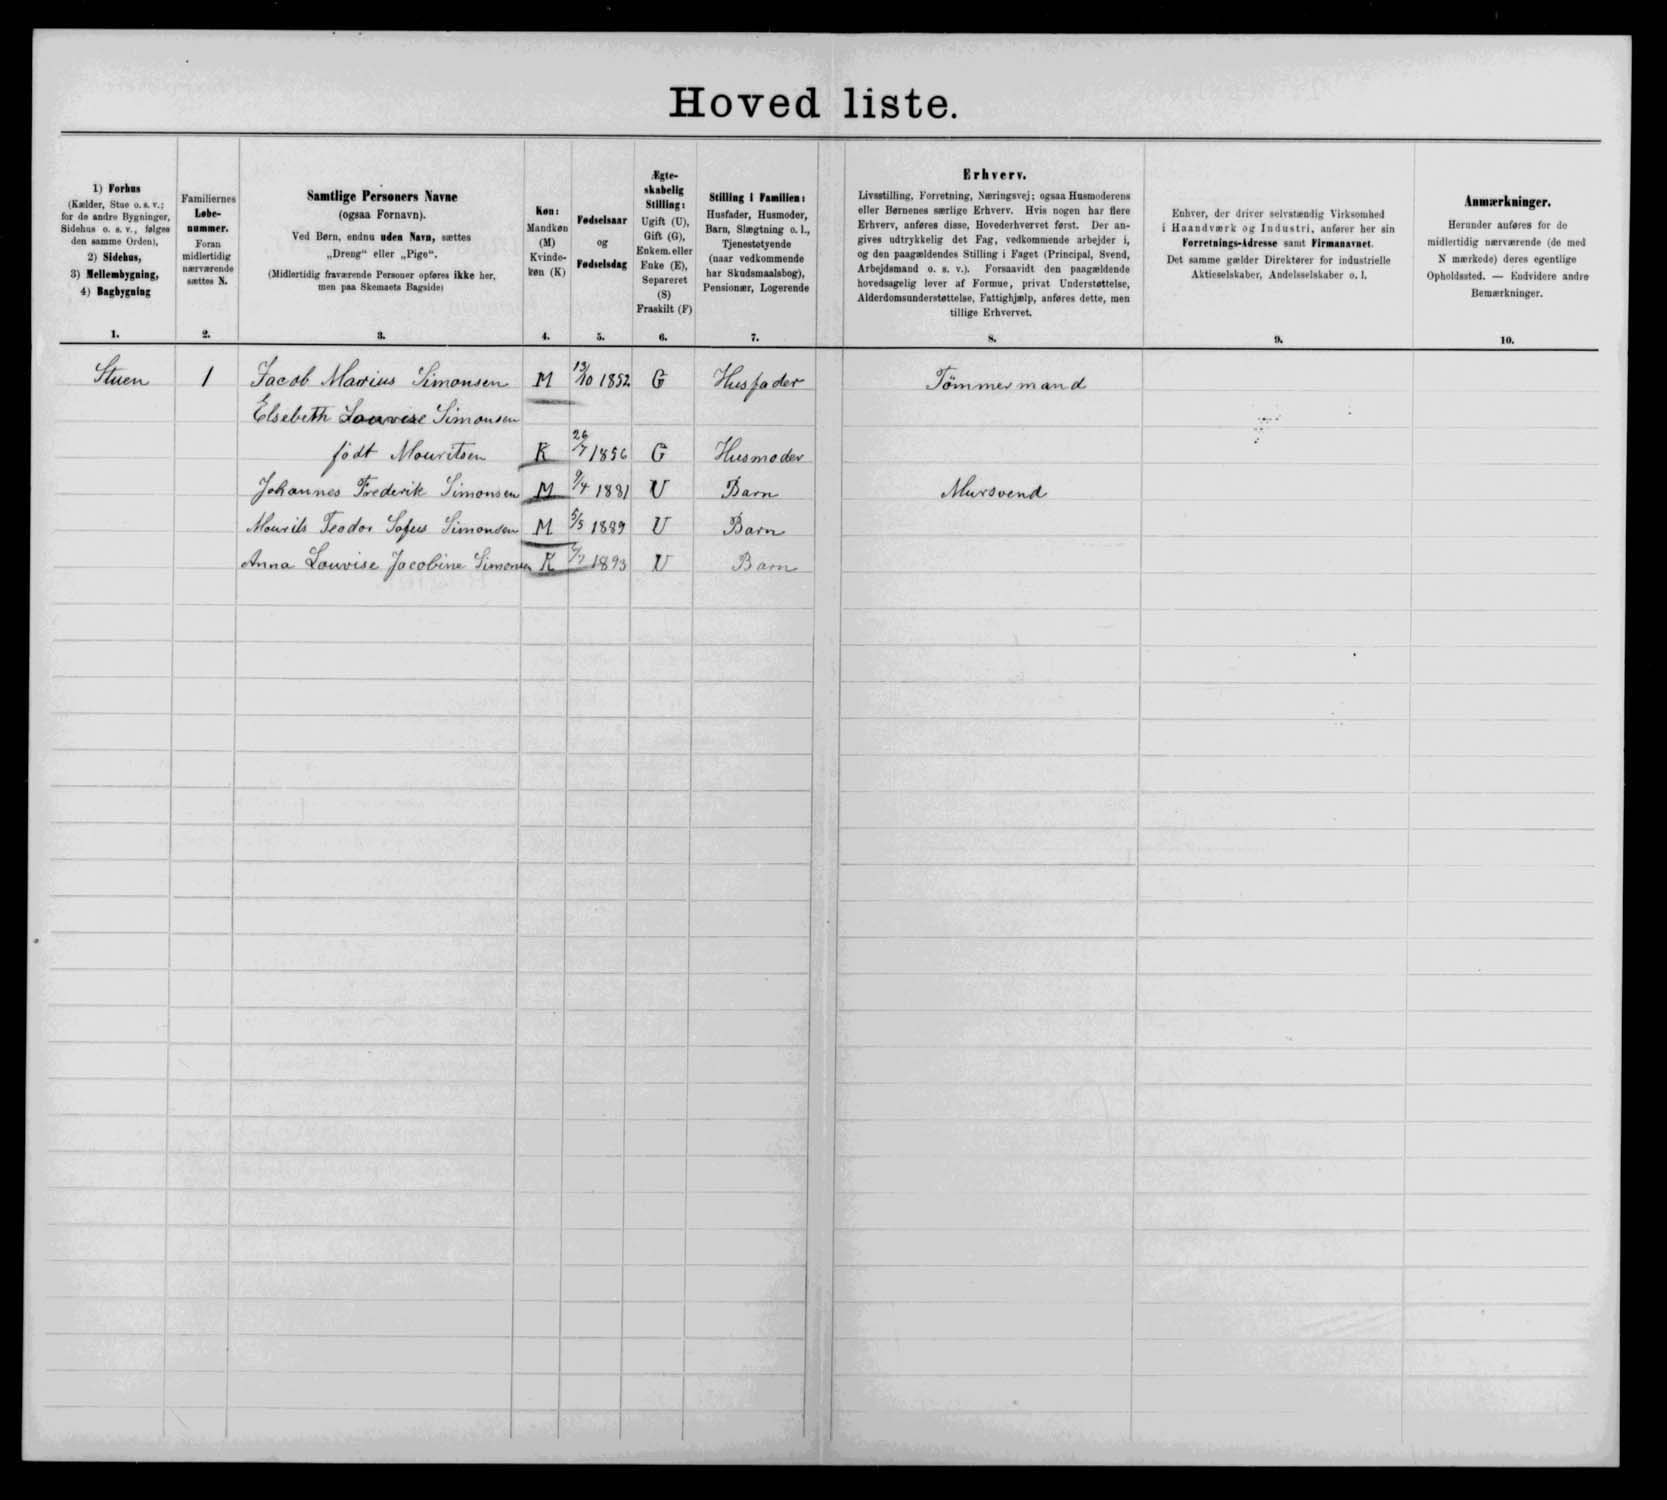 Hoved liste.
1) Forhus
(Kælder, Stue o. s. v.;
for de andre Bygninger,
Sidehus o. s. v., følges
den samme Orden),
2) Sidehus,
3) Mellembygning,
4) Bagbygning
1.
Familiernes
Løbe-
nummer.
Foran
midlertidig
nærværende
sættes N.
2.
Samtlige Personers Navne
(ogsaa Fornavn).
Ved Børn, endnu uden Navn, sættes
„Dreng“ eller „Pige“.
(Midlertidig fraværende Personer opføres ikke her,
men paa Skemaets Bagside)
3.
Køn:
Mandkøn
(M)
Kvinde-
køn (K)
4.
Fødselsaar
og
Fødselsdag
5.
Ægte-
skabelig
Stilling:
Ugift (U),
Gift (G),
Enkem. eller
Enke (E),
Separeret
(S)
Fraskilt (F)
6.
Stilling i Familien:
Husfader, Husmoder,
Barn, Slægtning o. l.,
Tjenestetyende
(naar vedkommende
har Skudsmaalsbog),
Pensionær, Logerende
7.
Erhverv.
Livsstilling, Forretning, Næringsvej; ogsaa Husmoderens
eller Børnenes særlige Erhverv. Hvis nogen har flere
Erhverv, anføres disse, Hovederhvervet først. Der an-
gives udtrykkelig det Fag, vedkommende arbejder i,
og den paagældendes Stilling i Faget (Principal, Svend,
Arbejdsmand o. s. v.). Forsaavidt den paagældende
hovedsagelig lever af Formue, privat Understøttelse,
Alderdomsunderstøttelse, Fattighjælp, anføres dette, men
tillige Erhvervet.
8.
Enhver, der driver selvstændig Virksomhed
i Haandværk og Industri, anfører her sin
Forretnings-Adresse samt Firmanavnet.
Det samme gælder Direktører for industrielle
Aktieselskaber, Andelsselskaber o. l.
9.
Anmærkninger.
Herunder anføres for de
midlertidig nærværende (de med
N mærkede) deres egentlige
Opholdssted. — Endvidere andre
Bemærkninger.
10.
Stuen 1 Jacob Marius Simonsen M 13/10 1852 G Husfader Tömmermand
Elsebeth Louvise Simonsen
födt Mouritsen K 26/7 1856 G Husmoder
Johannes Frederik Simonsen M 9/4 1881 U Barn Mursvend
Mourits Teodor Sofus Simonsen M 5/5 1889 U Barn
Anna Louvise Jacobine Simonsen K 1893 U Barn